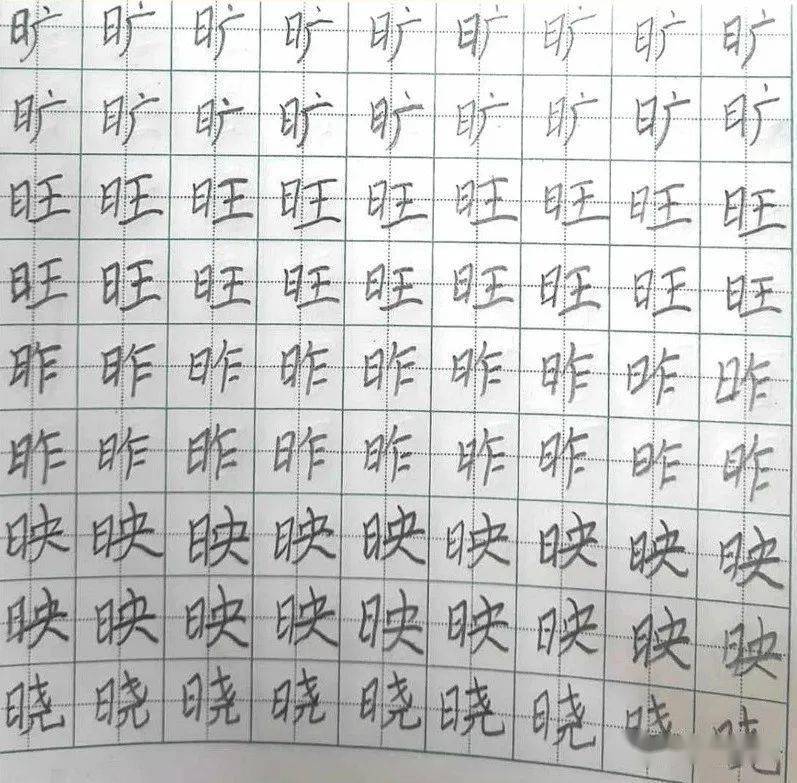 旷旷旷旷旷旷旷旷旷
旷旷旷旷旷旷旷旷旷
旺旺旺旺旺旺旺旺旺
旺旺旺旺旺旺旺旺旺
昨昨昨昨昨昨昨昨昨
昨昨昨昨昨昨昨昨昨
映映映映映映映映映
映映映映映映映映映
晓晓晓晓晓晓晓晓